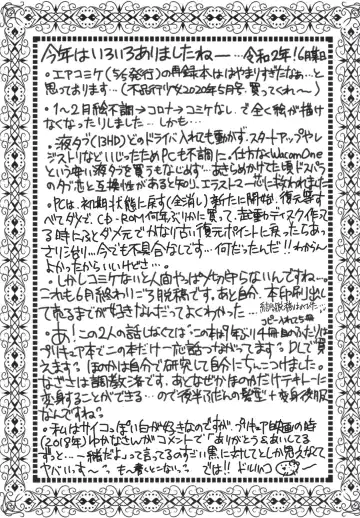 今年はいろいろありましたねー…令和2年!6月軍曹
・エアコミケ(5/6発行)の再録本ははやすぎたなぁ…と
思っております…(不品行リタ2020年5月号買ってくれ〜)
・1〜2月絵不調→コロナ→コミケなし で全く絵が描け
なくなったりしました…しかも…
・液タブ(13HD)どのドライバ入れても動かず、スタートアップやレ
ジストリなどいじったためPCも不調に。仕方なくWacomOne
という安い液タブを買うもなじめず…あきらめかけた頃ドスパラ
のタブ芯と互換性があると知り、エラストマー芯に救われました
・PCは、初期状態に戻す(全消し)新たに開始!復元等す
べてダメで、CD-ROM何年ぶりかに買って、起動ディスク作って
る時にふとダメ元でかなり古い復元ポイントに戻ったらあっ
さり治り…今でも不具合なしです…何だったんだ!!わからん
よかったからいいけどさ…。
・しかしコミケないと人間やっぱ〆切守らないんですねー。
これも6月終わりごろ脱稿です。あと自分、本印刷し出し
て売るまでが好きなんだってよくわかった…
コピー入れて25冊
・あ!この2人の話しなくては
プリキュア本でこの本だけ一応話つながってます。DLで買
えます。ほかは自分で研究して自分にちんこつけました。
なぎさは調教済です。あとなぜかほのかだけテキトーに
変身することができる…ので後半ふたんの髪型+変身後服
なんですね。
・私はサイコっぽい白が好きなのですが、プリキュア映画の時
(2018年)わかなさんがコメントで「ありがとう&あいしてる
ずっと…一緒だよって言ってるのすごい黒に対してとしか思えなくて
ヤバいっす〜。も〜尊くとない。では!!